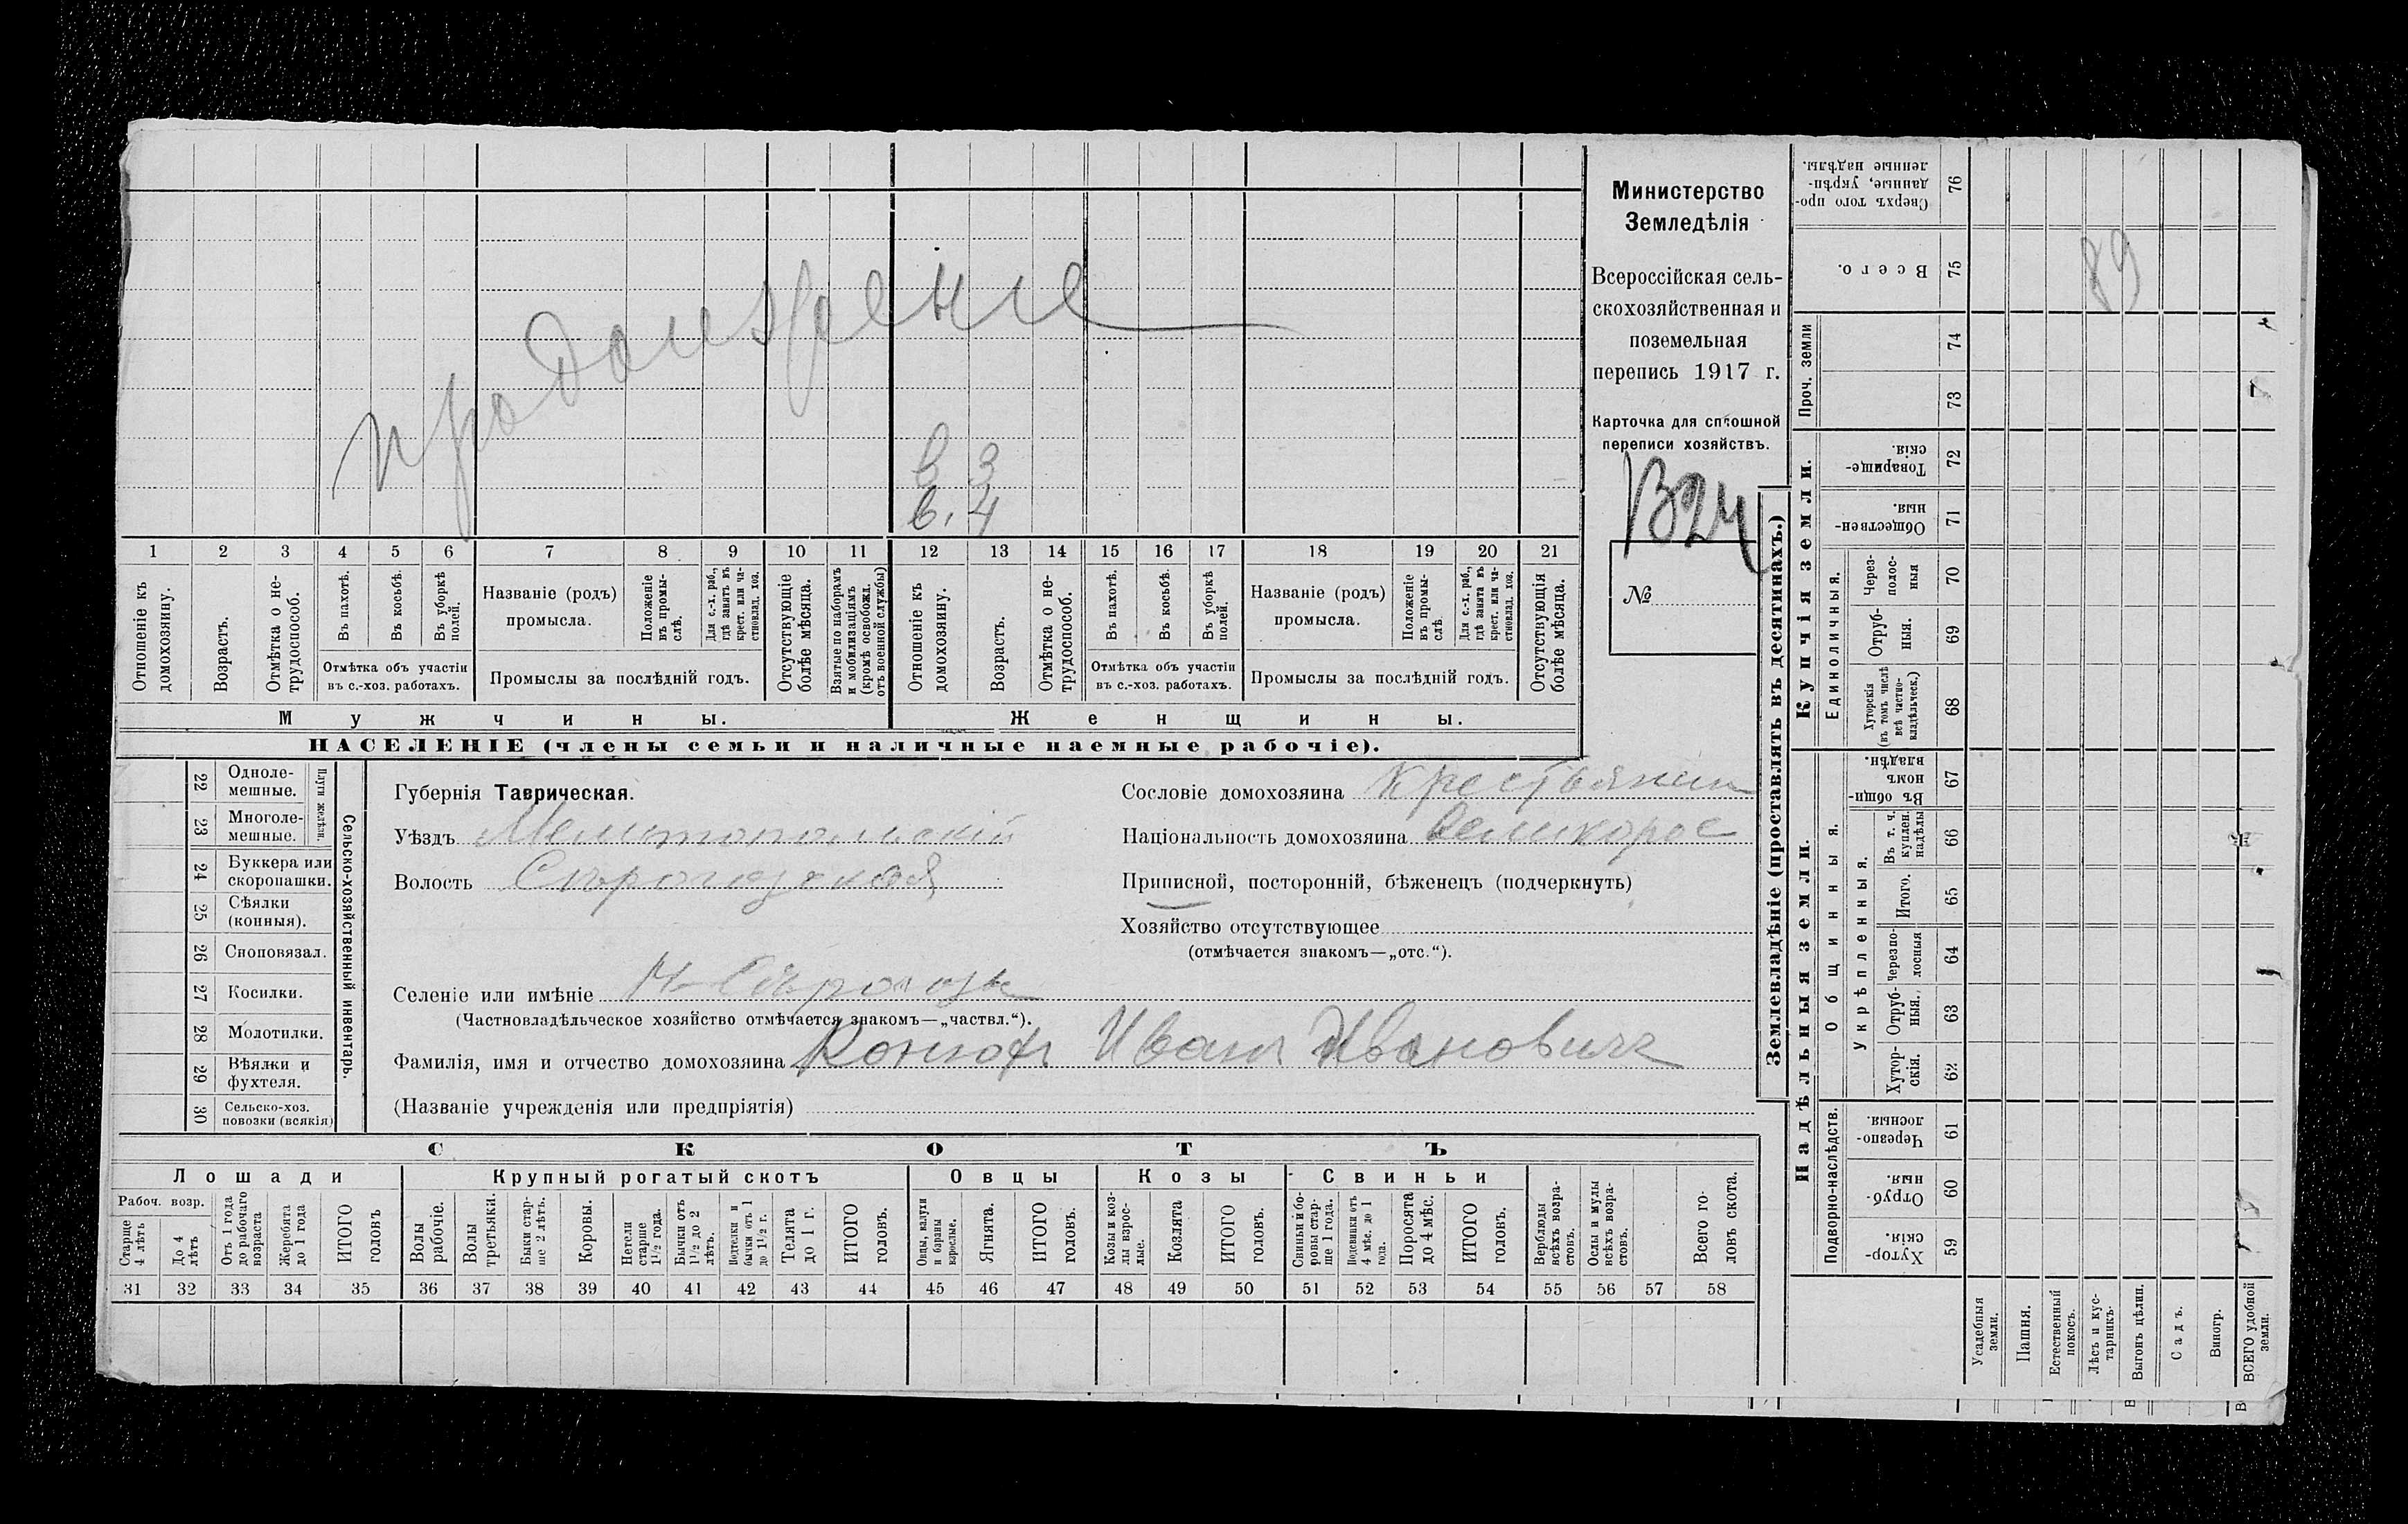 продолжение
в 3
в. 4
1 2 3 4 5 6 7 8 9 10 11 12 13 14 15 16 17 18 19 20 21
Отношеніе къ домохозяину.
Возрастъ.
Отмѣтка о не-
трудоспособ.
Въ пахотѣ.
Въ косьбѣ.
Въ уборкѣ
полей.
Отмѣтка объ участіи
въ с.-хоз. работахъ.
Названіе (родъ)
промысла.
Положеніе
въ промы-
слѣ.
Для с.-х. раб.,
гдѣ занятъ въ
крест. или ча-
стновлад. хоз.
Промыслы за послѣдній годъ.
Отсутствующіе
болѣе мѣсяца.
Взятые по наборамъ
и мобилизаціямъ
(кромѣ освобожд.
отъ военной службы)
Отношеніе къ
домохозяину.
Возрастъ.
Отмѣтка о не-
трудоспособ.
Въ пахотѣ.
Въ косьбѣ.
Въ уборкѣ
полей.
Отмѣтка объ участіи
въ с.-хоз. работахъ.
Названіе (родъ)
промысла.
Положеніе
въ промы-
слѣ.
Для с.-х. раб.,
гдѣ занята въ
крест. или ча-
стновлад. хоз.
Промыслы за послѣдній годъ.
Отсутствующія
болѣе мѣсяца.
Мужчины.
Женщины.
НАСЕЛЕНІЕ (члены семьи и наличные наемные рабочіе).
Министерство
Земледѣлія
Всероссійская сель-
скохозяйственная и
поземельная
перепись 1917 г.
Карточка для сплошной
переписи хозяйствъ.
№
22 Одноле-
мешные.
23 Многоле-
мешные.
Плуги желѣзн.
24 Буккера или
скоропашки.
25 Сѣялки
(конныя).
26 Сноповязал.
27 Косилки.
28 Молотилки.
29 Вѣялки и
фухтеля.
30 Сельско-хоз.
повозки (всякія)
Сельско-хозяйственный инвентарь.
Губернія Таврическая.
Уѣздъ Мелитопольскій
Волость Сѣрогозская
Сословіе домохозяина Крестьянин
Національность домохозяина великорос
Приписной, посторонній, бѣженецъ (подчеркнуть)
Хозяйство отсутствующее
(отмѣчается знакомъ—„отс.“).
Селеніе или имѣніе Н-Сѣрогозы
(Частновладѣльческое хозяйство отмѣчается знакомъ—„частвл.“).
Фамилія, имя и отчество домохозяина Конюх Иван Иванович
(Названіе учрежденія или предпріятія)
СКОТЪ
Лошади
Рабоч. возр.
Старше
4 лѣтъ
До 4
лѣтъ
Отъ 1 года
до рабочаго
возраста
Жеребята
до 1 года
ИТОГО
головъ
Крупный рогатый скотъ
Волы
рабочіе.
Волы
третьяки.
Быки стар-
ше 2 лѣтъ.
Коровы.
Нетели
старше
1½ года.
Бычки отъ
1½ до 2
лѣтъ.
Подтелки и
бычки отъ 1
до 1½ г.
Телята
до 1 г.
ИТОГО
головъ.
Овцы
Овцы, валухи
и бараны
взрослые.
Ягнята.
ИТОГО
головъ.
Козы
Козы и коз-
лы взрос-
лые.
Козлята
ИТОГО
головъ.
Свиньи
Свиньи и бо-
ровы стар-
ше 1 года.
Подсвинки отъ
4 мѣс. до 1
года.
Поросята
до 4 мѣс.
ИТОГО
головъ.
Верблюды
всѣхъ возра-
стовъ.
Ослы и мулы
всѣхъ возра-
стовъ.
Всего го-
ловъ скота.
31 32 33 34 35 36 37 38 39 40 41 42 43 44 45 46 47 48 49 50 51 52 53 54 55 56 57 58
Землевладѣніе (проставлять въ десятинахъ.)
Сверхъ того про-
данные, укрѣп-
ленные надѣлы.
76
Всего.
75
89
Проч. земли
74
73
Купчія земли.
Товарище-
скія.
72
Обществен-
ныя.
71
Единоличныя.
Через-
полос-
ныя
70
Отруб-
ныя.
69
Хуторскія
(въ томъ числѣ
всѣ частно-
владѣльческ.)
68
Надѣльныя земли.
Общинныя.
Въ общин-
номъ
владѣн.
67
Укрѣпленныя.
Въ т. ч.
куплен.
надѣлы
66
Итого.
65
Черезпо-
лосныя
64
Отруб-
ныя.
63
Хутор-
скія.
62
Подворно-наслѣдств.
Черезпо-
лосныя.
61
Отруб-
ныя.
60
Хутор-
скія.
59
Усадебныя
земли.
Пашня.
Естественный
покосъ.
Лѣсъ и кус-
тарникъ.
Выгонъ цѣлин.
Садъ.
Виногр.
ВСЕГО удобной
земли.